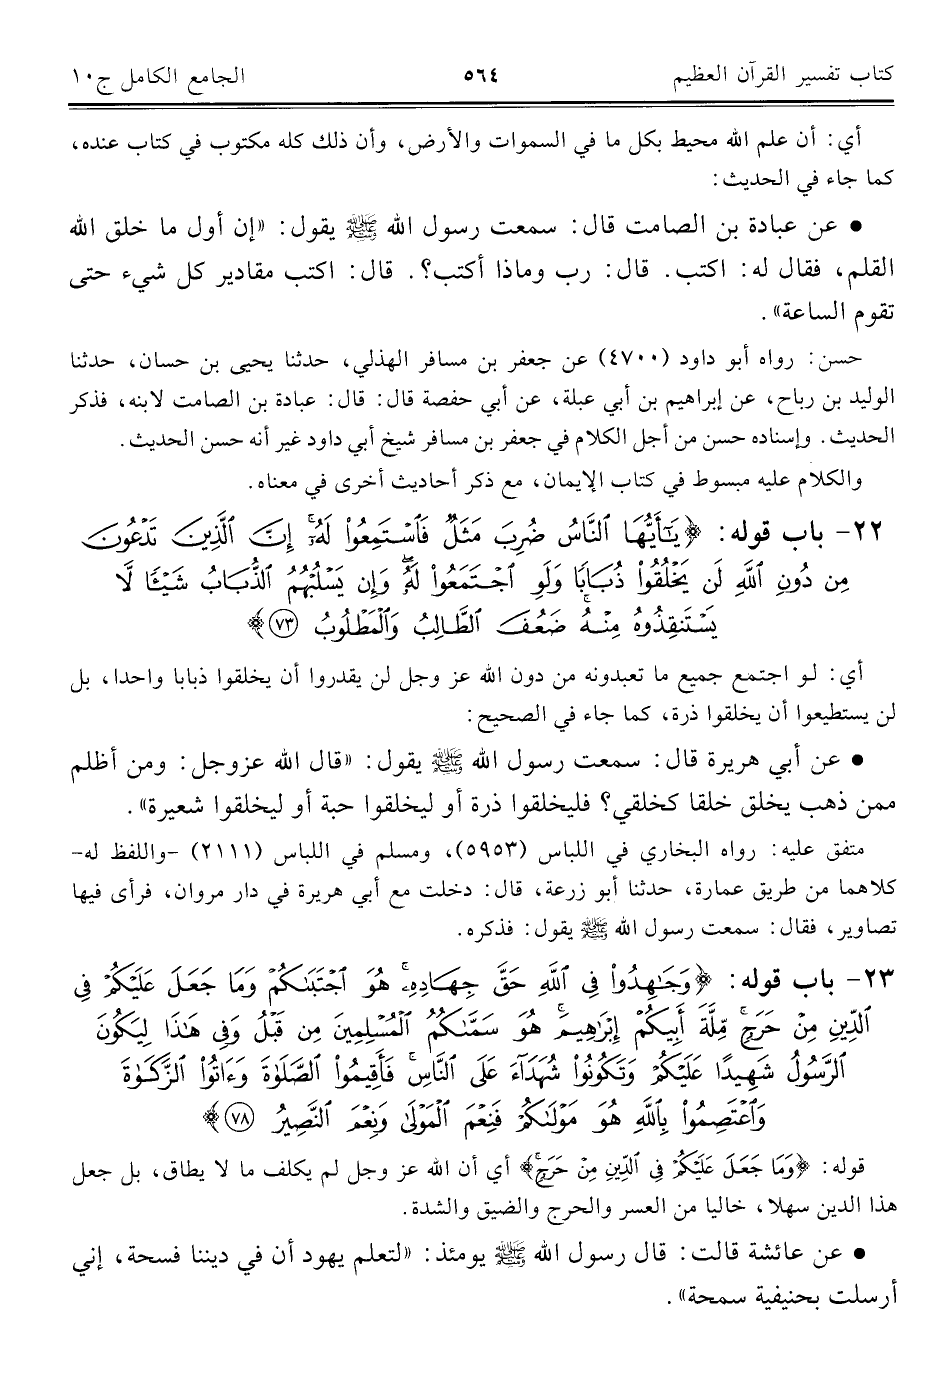 كتاب تفسير القرآن العظيم ٥٦٤ الجامع الكامل ج١٠
أي: أن علم الله محيط بكل ما في السموات والأرض، وأن ذلك كله مكتوب في كتاب عنده،
كما جاء في الحديث:
• عن عبادة بن الصامت قال: سمعت رسول الله ﷺ يقول: «إن أول ما خلق الله
القلم، فقال له: اكتب. قال: رب وماذا أكتب؟. قال: اكتب مقادير كل شيء حتى
تقوم الساعة».
حسن: رواه أبو داود (٤٧٠٠) عن جعفر بن مسافر الهذلي، حدثنا يحيى بن حسان، حدثنا
الوليد بن رباح، عن إبراهيم بن أبي عبلة، عن أبي حفصة قال: قال: عبادة بن الصامت لابنه، فذكر
الحديث. وإسناده حسن من أجل الكلام في جعفر بن مسافر شيخ أبي داود غير أنه حسن الحديث.
والكلام عليه مبسوط في كتاب الإيمان، مع ذكر أحاديث أخرى في معناه.
٢٢- باب قوله: ﴿يَـٰٓأَيُّهَا ٱلنَّاسُ ضُرِبَ مَثَلٌ فَٱسْتَمِعُوا۟ لَهُۥٓ ۚ إِنَّ ٱلَّذِينَ تَدْعُونَ
مِن دُونِ ٱللَّهِ لَن يَخْلُقُوا۟ ذُبَابًا وَلَوِ ٱجْتَمَعُوا۟ لَهُۥ ۖ وَإِن يَسْلُبْهُمُ ٱلذُّبَابُ شَيْـًٔا لَّا
يَسْتَنقِذُوهُ مِنْهُ ۚ ضَعُفَ ٱلطَّالِبُ وَٱلْمَطْلُوبُ ٧٣﴾
أي: لو اجتمع جميع ما تعبدونه من دون الله عز وجل لن يقدروا أن يخلقوا ذبابا واحدا، بل
لن يستطيعوا أن يخلقوا ذرة، كما جاء في الصحيح:
• عن أبي هريرة قال: سمعت رسول الله ﷺ يقول: «قال الله عزوجل: ومن أظلم
ممن ذهب يخلق خلقا كخلقي؟ فليخلقوا ذرة أو ليخلقوا حبة أو ليخلقوا شعيرة».
متفق عليه: رواه البخاري في اللباس (٥٩٥٣)، ومسلم في اللباس (٢١١١) -واللفظ له-
كلاهما من طريق عمارة، حدثنا أبو زرعة، قال: دخلت مع أبي هريرة في دار مروان، فرأى فيها
تصاوير، فقال: سمعت رسول الله ﷺ يقول: فذكره.
٢٣- باب قوله: ﴿وَجَـٰهِدُوا۟ فِى ٱللَّهِ حَقَّ جِهَادِهِۦ ۚ هُوَ ٱجْتَبَىٰكُمْ وَمَا جَعَلَ عَلَيْكُمْ فِى
ٱلدِّينِ مِنْ حَرَجٍ ۚ مِّلَّةَ أَبِيكُمْ إِبْرَٰهِيمَ ۚ هُوَ سَمَّىٰكُمُ ٱلْمُسْلِمِينَ مِن قَبْلُ وَفِى هَـٰذَا لِيَكُونَ
ٱلرَّسُولُ شَهِيدًا عَلَيْكُمْ وَتَكُونُوا۟ شُهَدَآءَ عَلَى ٱلنَّاسِ ۚ فَأَقِيمُوا۟ ٱلصَّلَوٰةَ وَءَاتُوا۟ ٱلزَّكَوٰةَ
وَٱعْتَصِمُوا۟ بِٱللَّهِ هُوَ مَوْلَىٰكُمْ ۖ فَنِعْمَ ٱلْمَوْلَىٰ وَنِعْمَ ٱلنَّصِيرُ ٧٨﴾
قوله: ﴿وَمَا جَعَلَ عَلَيْكُمْ فِى ٱلدِّينِ مِنْ حَرَجٍ ۚ﴾ أي أن الله عز وجل لم يكلف ما لا يطاق، بل جعل
هذا الدين سهلا، خاليا من العسر والحرج والضيق والشدة.
• عن عائشة قالت: قال رسول الله ﷺ يومئذ: «لتعلم يهود أن في ديننا فسحة، إني
أرسلت بحنيفية سمحة».